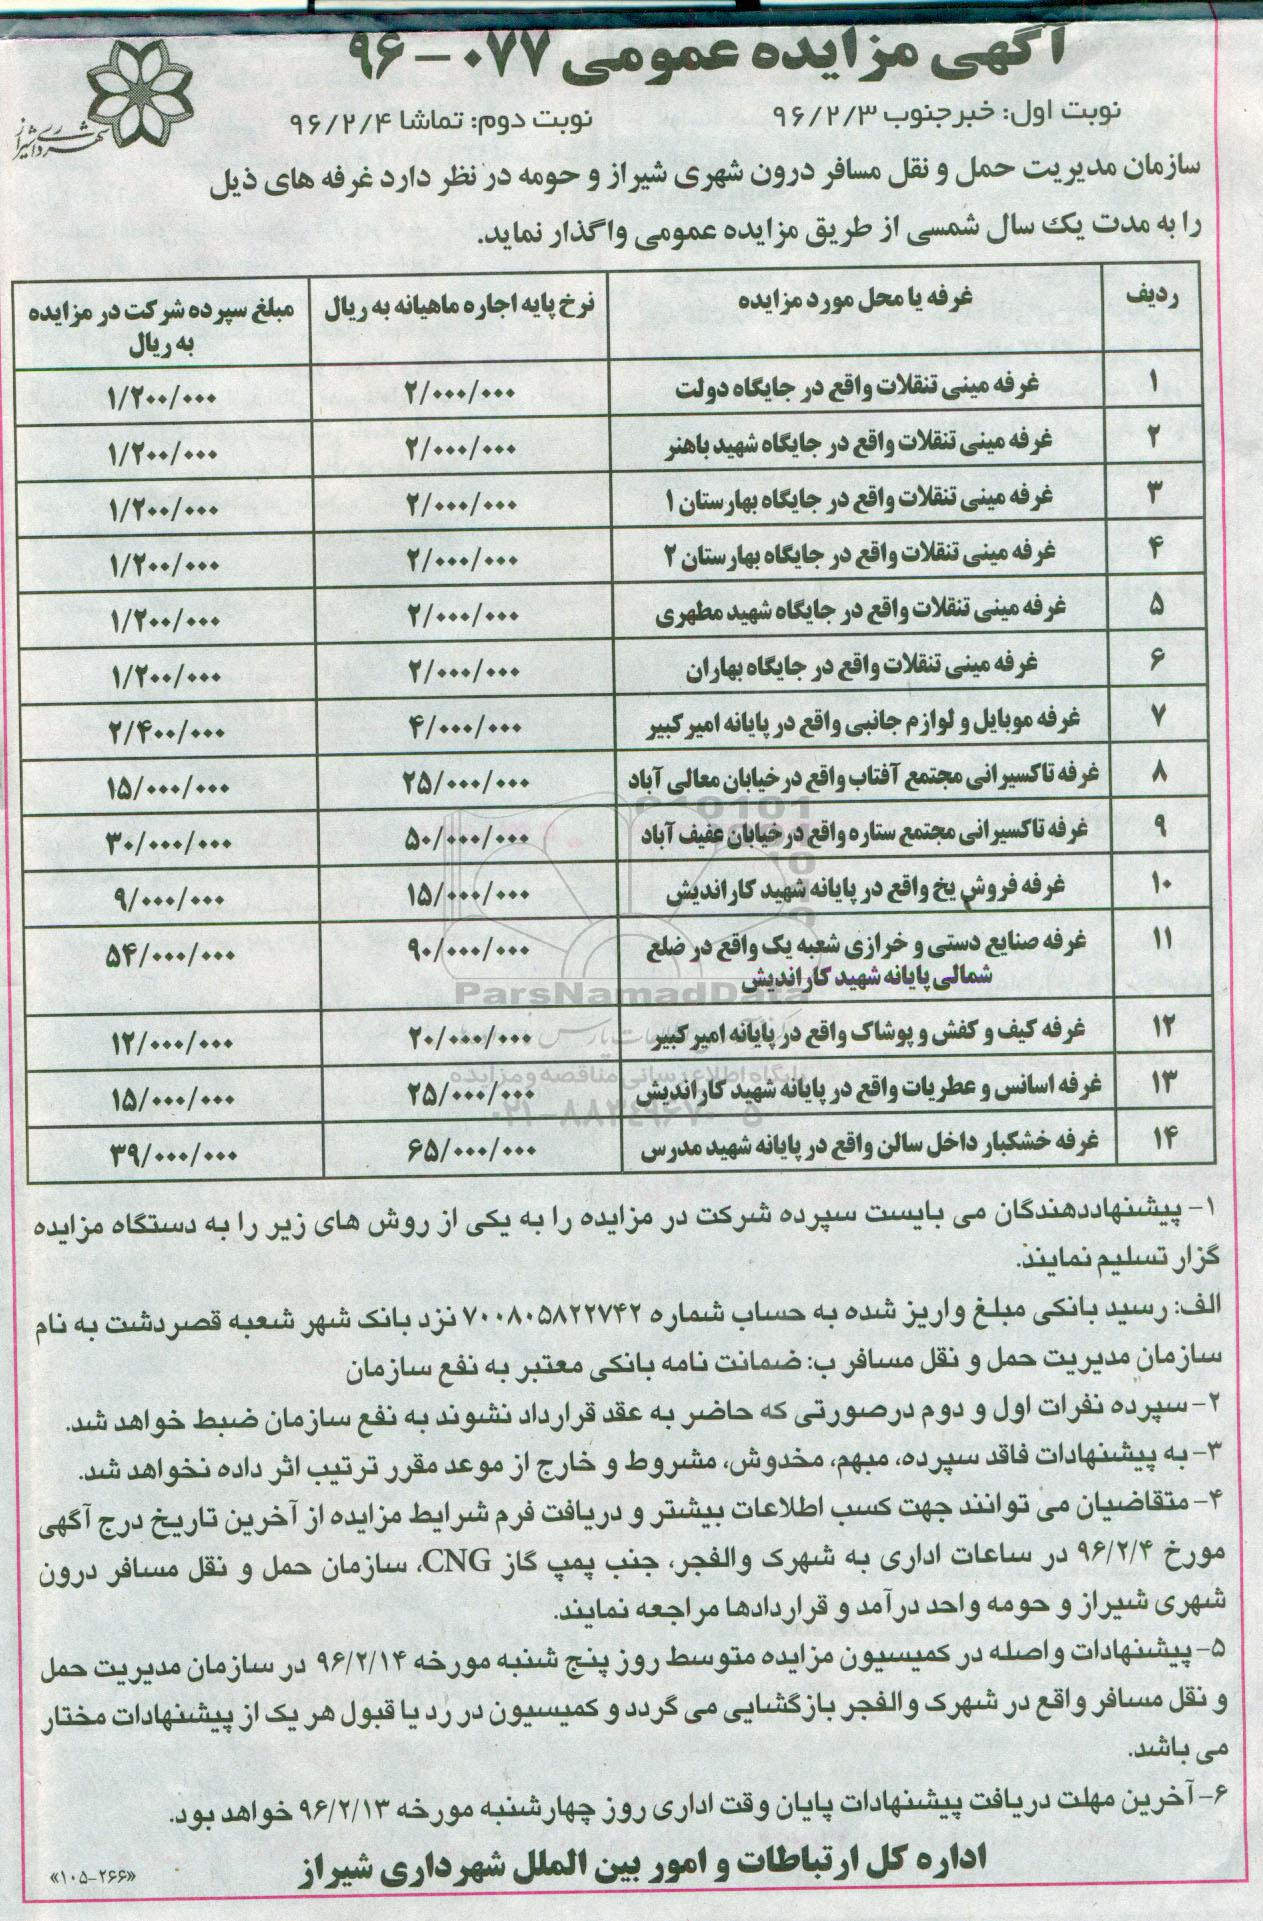 آگهی مزایده عمومی ۰۷۷-۹۶
شهرداری شیراز
نوبت اول: خبرجنوب ۹۶/۲/۳
نوبت دوم: تماشا ۹۶/۲/۴
سازمان مدیریت حمل و نقل مسافر درون شهری شیراز و حومه در نظر دارد غرفه های ذیل
را به مدت یک سال شمسی از طریق مزایده عمومی واگذار نماید.
ردیف غرفه یا محل مورد مزایده نرخ پایه اجاره ماهیانه به ریال مبلغ سپرده شرکت در مزایده
به ریال
۱ غرفه مینی تنقلات واقع در جایگاه دولت ۲/۰۰۰/۰۰۰ ۱/۲۰۰/۰۰۰
۲ غرفه مینی تنقلات واقع در جایگاه شهید باهنر ۲/۰۰۰/۰۰۰ ۱/۲۰۰/۰۰۰
۳ غرفه مینی تنقلات واقع در جایگاه بهارستان ۱ ۲/۰۰۰/۰۰۰ ۱/۲۰۰/۰۰۰
۴ غرفه مینی تنقلات واقع در جایگاه بهارستان ۲ ۲/۰۰۰/۰۰۰ ۱/۲۰۰/۰۰۰
۵ غرفه مینی تنقلات واقع در جایگاه شهید مطهری ۲/۰۰۰/۰۰۰ ۱/۲۰۰/۰۰۰
۶ غرفه مینی تنقلات واقع در جایگاه بهاران ۲/۰۰۰/۰۰۰ ۱/۲۰۰/۰۰۰
۷ غرفه موبایل و لوازم جانبی واقع در پایانه امیرکبیر ۴/۰۰۰/۰۰۰ ۲/۴۰۰/۰۰۰
۸ غرفه تاکسیرانی مجتمع آفتاب واقع در خیابان معالی آباد ۲۵/۰۰۰/۰۰۰ ۱۵/۰۰۰/۰۰۰
۹ غرفه تاکسیرانی مجتمع ستاره واقع در خیابان عفیف آباد ۵۰/۰۰۰/۰۰۰ ۳۰/۰۰۰/۰۰۰
۱۰ غرفه فروش یخ واقع در پایانه شهید کاراندیش ۱۵/۰۰۰/۰۰۰ ۹/۰۰۰/۰۰۰
۱۱ غرفه صنایع دستی و خرازی شعبه یک واقع در ضلع ۹۰/۰۰۰/۰۰۰ ۵۴/۰۰۰/۰۰۰
شمالی پایانه شهید کاراندیش
ParsNamadData
۱۲ غرفه کیف و کفش و پوشاک واقع در پایانه امیرکبیر ۲۰/۰۰۰/۰۰۰ ۱۲/۰۰۰/۰۰۰
پایگاه اطلاع رسانی مناقصه و مزایده
۱۳ غرفه اسانس و عطریات واقع در پایانه شهید کاراندیش ۲۵/۰۰۰/۰۰۰ ۱۵/۰۰۰/۰۰۰
۰۲۱-۸۸۳۴۹۶۷۰-۵
۱۴ غرفه خشکبار داخل سالن واقع در پایانه شهید مدرس ۶۵/۰۰۰/۰۰۰ ۳۹/۰۰۰/۰۰۰
۱- پیشنهاددهندگان می بایست سپرده شرکت در مزایده را به یکی از روش های زیر را به دستگاه مزایده
گزار تسلیم نمایند.
الف: رسید بانکی مبلغ واریز شده به حساب شماره ۷۰۰۸۰۵۸۲۲۷۴۲ نزد بانک شهر شعبه قصردشت به نام
سازمان مدیریت حمل و نقل مسافر ب: ضمانت نامه بانکی معتبر به نفع سازمان
۲- سپرده نفرات اول و دوم درصورتی که حاضر به عقد قرارداد نشوند به نفع سازمان ضبط خواهد شد.
۳- به پیشنهادات فاقد سپرده، مبهم، مخدوش، مشروط و خارج از موعد مقرر ترتیب اثر داده نخواهد شد.
۴- متقاضیان می توانند جهت کسب اطلاعات بیشتر و دریافت فرم شرایط مزایده از آخرین تاریخ درج آگهی
مورخ ۹۶/۲/۴ در ساعات اداری به شهرک والفجر، جنب پمپ گاز CNG، سازمان حمل و نقل مسافر درون
شهری شیراز و حومه واحد درآمد و قراردادها مراجعه نمایند.
۵- پیشنهادات واصله در کمیسیون مزایده متوسط روز پنج شنبه مورخه ۹۶/۲/۱۴ در سازمان مدیریت حمل
و نقل مسافر واقع در شهرک والفجر بازگشایی می گردد و کمیسیون در رد یا قبول هر یک از پیشنهادات مختار
می باشد.
۶- آخرین مهلت دریافت پیشنهادات پایان وقت اداری روز چهارشنبه مورخه ۹۶/۲/۱۳ خواهد بود.
اداره کل ارتباطات و امور بین الملل شهرداری شیراز
«۱۰۵-۲۶۶»